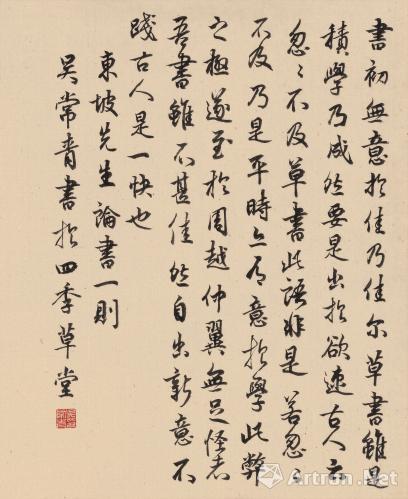 書初無意於佳乃佳尔草書雖是
積學乃成然要是出於欲速古人云
忽〻不及草書此語非是若忽〻
不及乃是平時亦有意於學此弊
之極遂至於周越仲翼無足怪者
吾書雖不甚佳然自出新意不
踐古人是一快也
東坡先生論書一則
吳常青書於四季草堂
Artron.Net